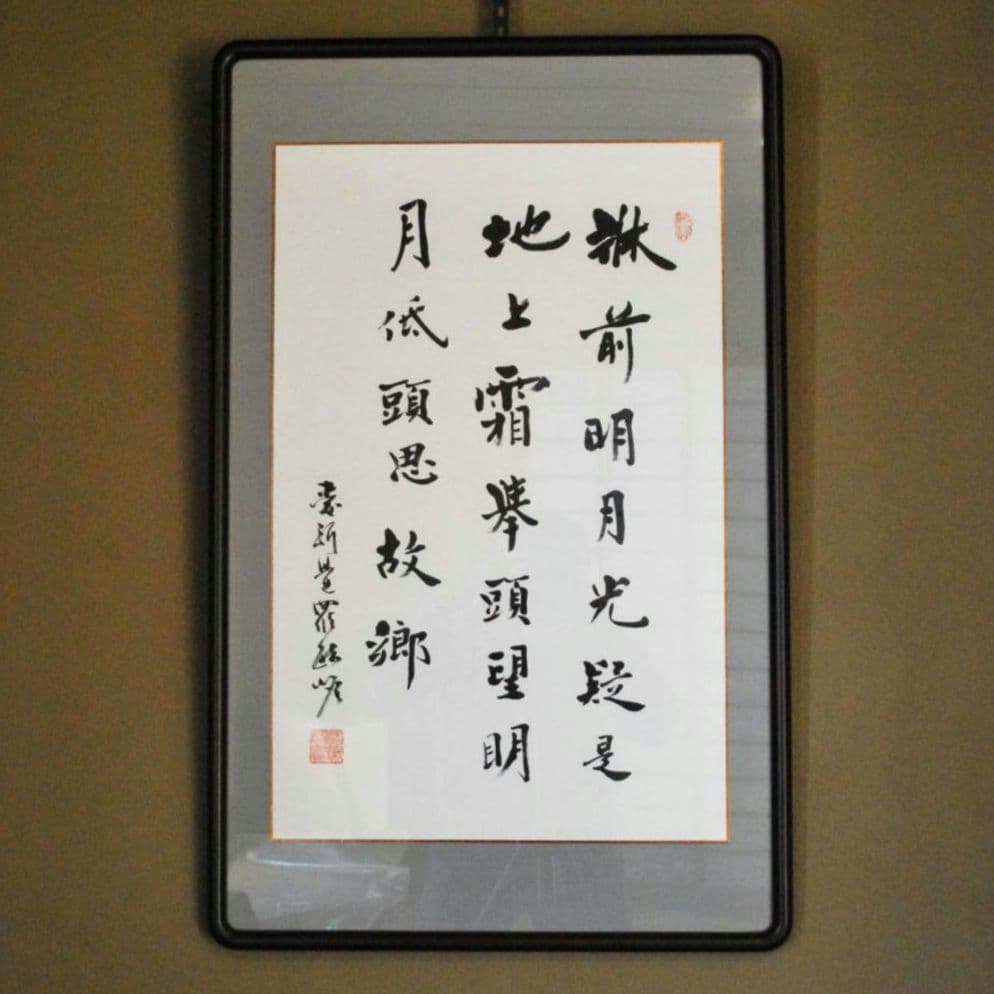 牀前明月光疑是
地上霜舉頭望明
月低頭思故鄉
愛新覺羅毓